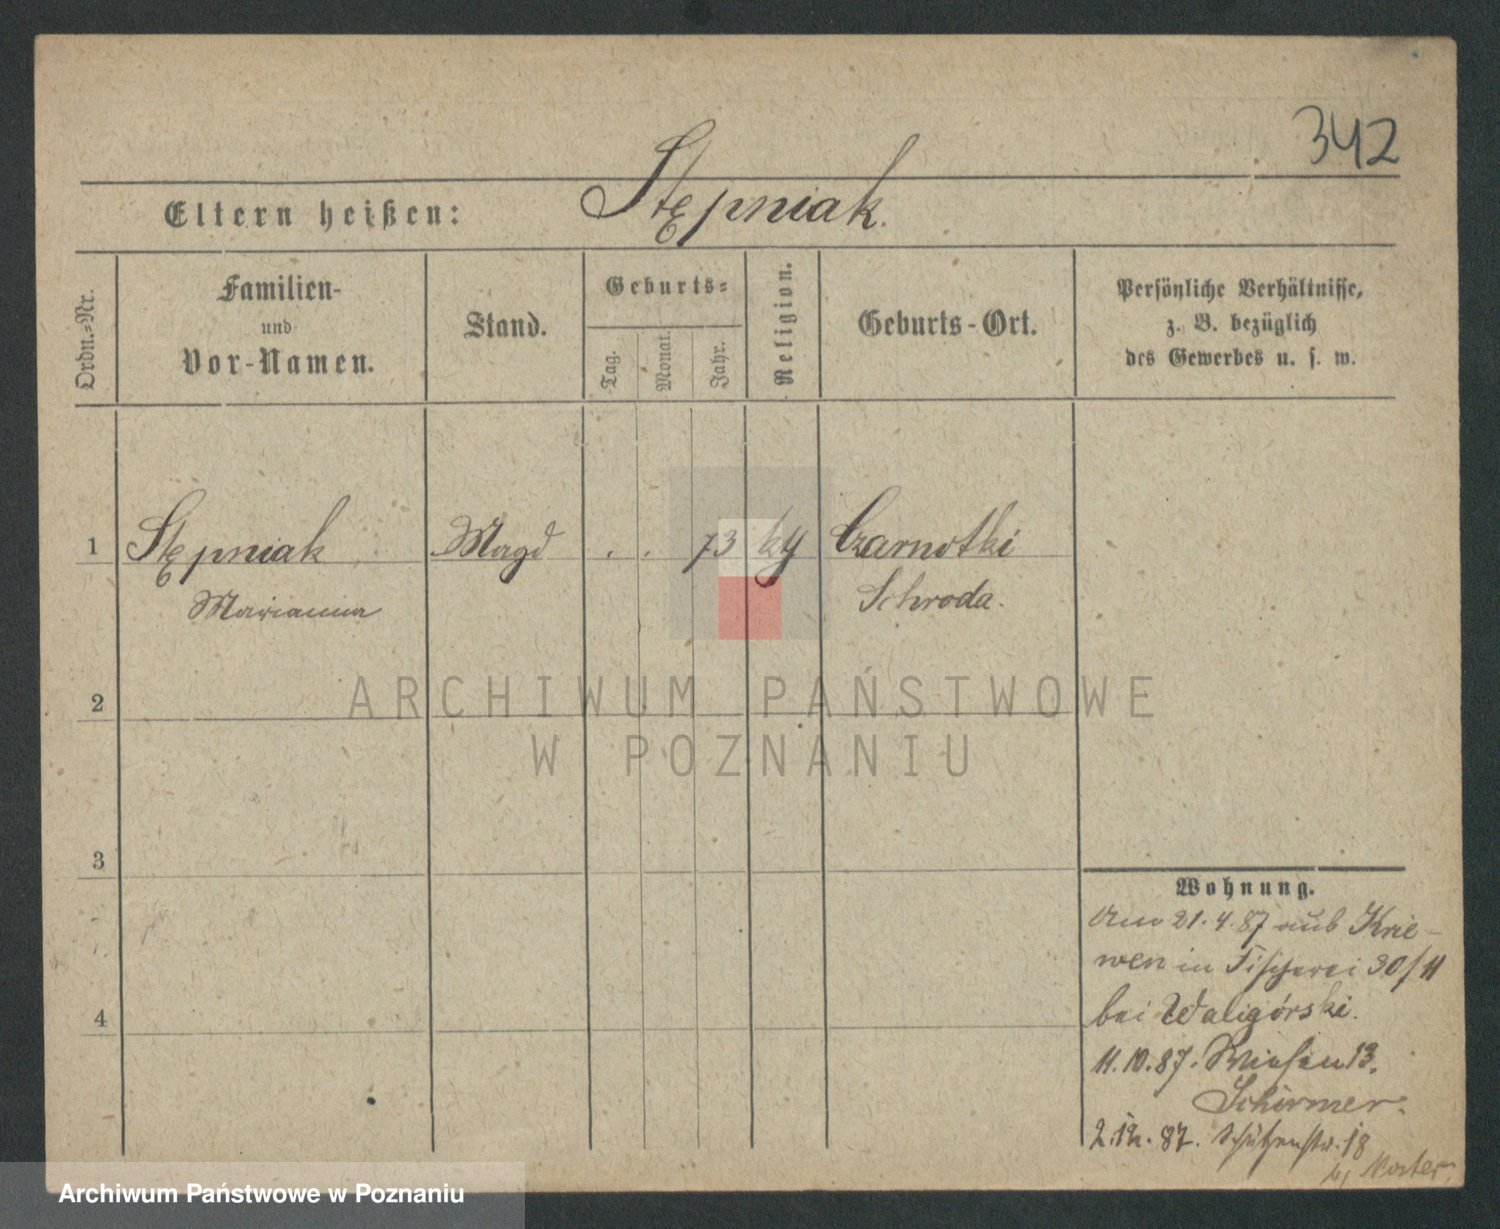 342
Stępniak.
Eltern heißen:
Ordn.=Nr.
Familien-
und
Vor-Namen.
Stand.
Geburts=
Tag.
Monat.
Jahr.
Religion.
Geburts-Ort.
Persönliche Verhältnisse,
z. B. bezüglich
des Gewerbes u. s. w.
1 Stępniak Magd . . 73 Czarnotki
Marianna Schroda.
ARCHIWUM PAŃSTWOWE
W POZNANIU
2
3
4
Wohnung.
21.4.87 aus Krie-
wen in Fischerei 30/11
bei Waligórski.
11.10.87. Wiesen 13.
Schirmer.
2.12.87. Schützenstr. 18
Archiwum Państwowe w Poznaniu